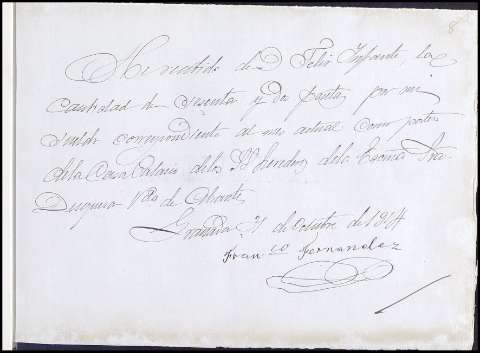 He recibido de D Felix Infante, la
cantidad de sesenta y dos ptas, por mi
sueldo correspondiente al mes actual como portero
de la Casa Palacio de los Herederos de la Excma Sra
Duquesa Vda de Abrantes
Granada 31 de Octubre de 1914
Franco Fernandez